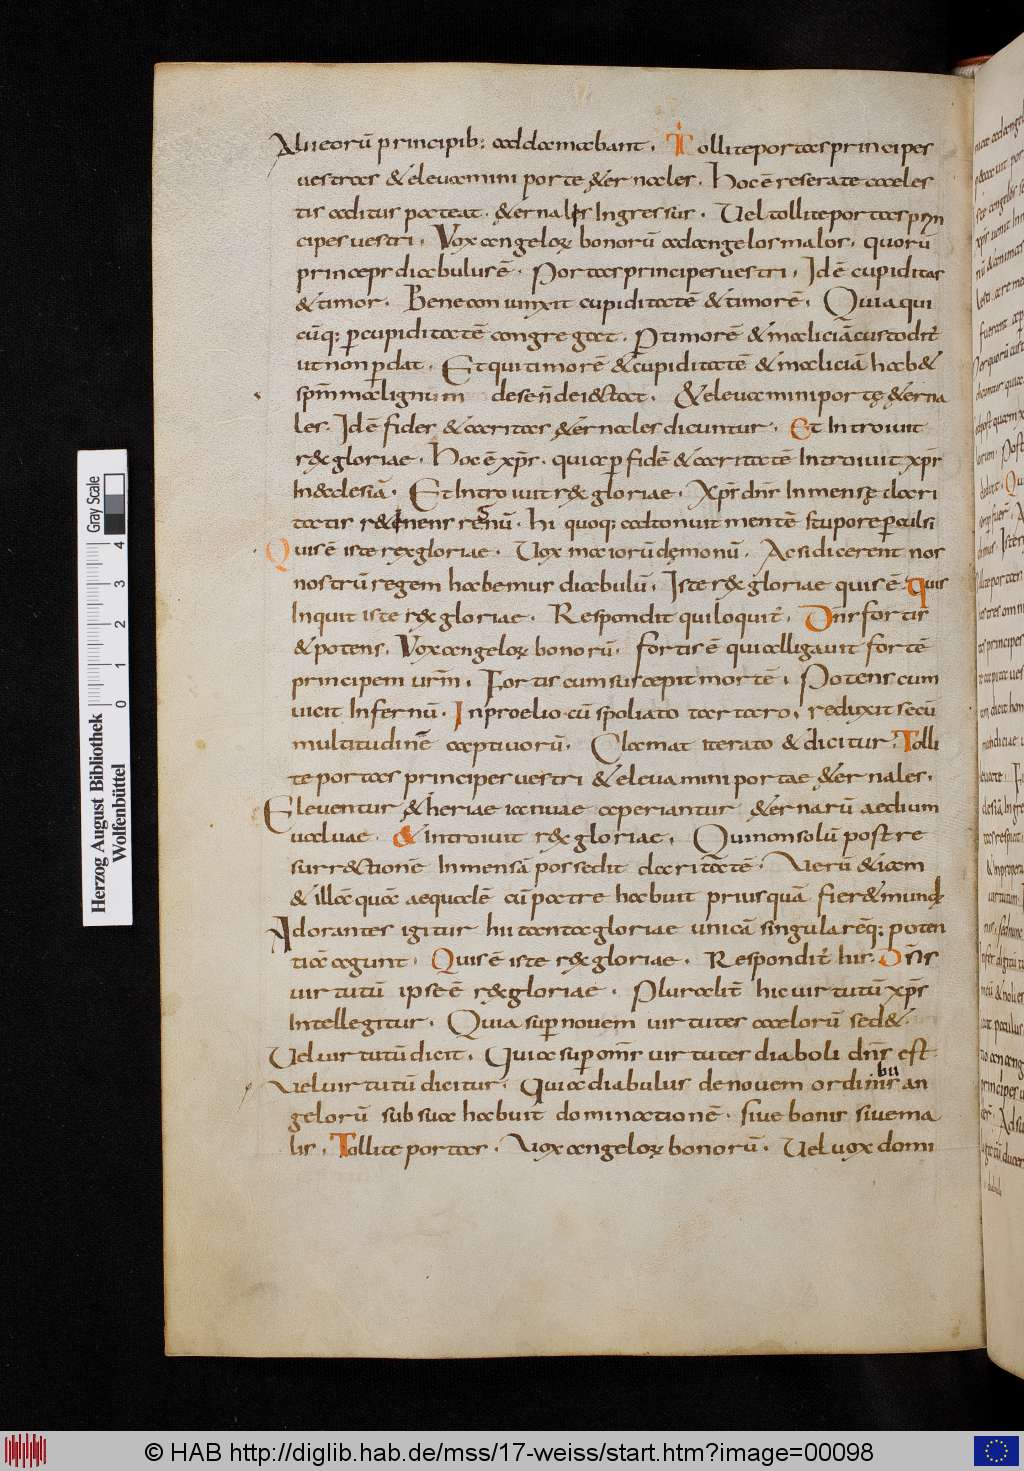 Alii eorū principib; acclamabant. Tollite portas principes
vestras & elevamini portę &ernales. Hoc ē reserate cæles
tis aditus pateat. &ernalis Ingressus. Uel tollite portas prin
cipes vestri. Vox angeloꝝ bonorū ad angelos malos. quorū
princeps diabulus ē. Portas principes vestri. Id ē cupiditas
& timor. Bene coniunxit cupiditatē & timorē. Quia qui
cūq; ꝑ cupiditatē congregat. Ꝑ timorē & maliciā custodit̄
ut non ꝑdat. Et qui timorē & cupiditatē & maliciā hab&
spm̄ malignum de sen dei&at. & elevamini portę &erna
les. Id ē fides & caritas &ernales dicuntur. Et Introiuit
r&x gloriae. Hoc ē xp̄s. quia ꝑ fidē & caritatē Introiuit xp̄s
In &clesiā. Et Introiuit r&x gloriae. Xp̄s dn̄s In mensę clari
tatis r&inens regnū. hi quoq; adtonuit mentē stupore ꝑculsi
Quis ē iste rex gloriae. Vox maiorū dęmonū. Ac si dicerent nos
nostrū regem habemus diabulū. Iste r&x gloriae quis ē. Quis
Inquit iste r&x gloriae. Respondit qui loquit̄. Dn̄s fortis
& potens. Vox angeloꝝ bonorū. fortis ē qui alligauit fortē
principem ur̄m. Fortis cum suscepit mortē. Potens cum
vicit Infernū. In proelio cū spoliato tartaro. reduxit secū
multitudinē captivorū. Clamat iterato & dicitur. Tolli
te portas principes vestri & eleva mini portae &ernales.
Eleventur &heriae ianuae aperiantur &ernarū aedium
ualuae. & introiuit r&x gloriae. Qui non solū post re
surr&tionē Inmensā possedit claritatē. Verū & iam
& illac quac aequalē cū patre habuit priusquā fier& mundꝰ
Adorantes igitur hii tanta gloriae unicā singularēq; poten
tiā agunt. Quis ē iste r&x gloriae. Respondit̄ his. Dn̄s
virtutū ipse ē r&x gloriae. Pluralit̄ hic virtutū xp̄s
Intellegitur. Quia suꝑ novem virtutes cælorū sed&.
Uel virtutū dicit. Quia suꝑ om̄s virtutes diaboli dn̄s est.
Uel virtutū dicitur. Quia diabulus de novem ordinibus an
gelorū sub sua habuit dominationē. sive bonis sive ma
lis. Tollite portas. Vox angeloꝝ bonorū. Uel vox domi
Herzog August Bibliothek
Wolfenbüttel
0 1 2 3 4
Gray Scale
© HAB http://diglib.hab.de/mss/17-weiss/start.htm?image=00098